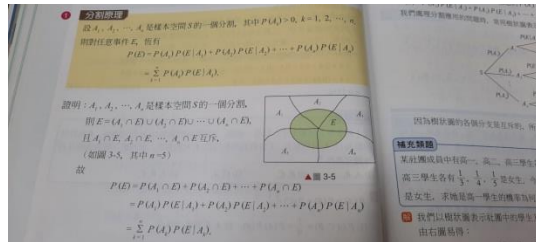 1 分割原理
設 A₁, A₂, …, Aₙ 是樣本空間 S 的一個分割, 其中 P(Aₖ) > 0, k = 1, 2, …, n,
則對任意事件 E, 恆有
P(E) = P(A₁)P(E|A₁) + P(A₂)P(E|A₂) + … + P(Aₙ)P(E|Aₙ)
= Σₖ₌₁ⁿ P(Aₖ)P(E|Aₖ).
證明:A₁, A₂, …, Aₙ 是樣本空間 S 的一個分割,
則 E = (A₁∩E)∪(A₂∩E)∪…∪(Aₙ∩E),
且 A₁∩E, A₂∩E, …, Aₙ∩E 互斥,
(如圖 3-5, 其中 n=5)
故
P(E) = P(A₁∩E) + P(A₂∩E) + … + P(Aₙ∩E)
= P(A₁)P(E|A₁) + P(A₂)P(E|A₂) + … + P(Aₙ)P(E|Aₙ)
= Σₖ₌₁ⁿ P(Aₖ)P(E|Aₖ).
E
▲圖 3-5
因為樹狀圖的各個分支是互斥的, 所
補充類題
某社團成員中有高一、高二、高三學生
高三學生各有 1/3, 1/4, 1/5 是女生, 今
是女生, 求她是高一學生的機率為何
解 我們以樹狀圖表示社團中的學生
由右圖易得: